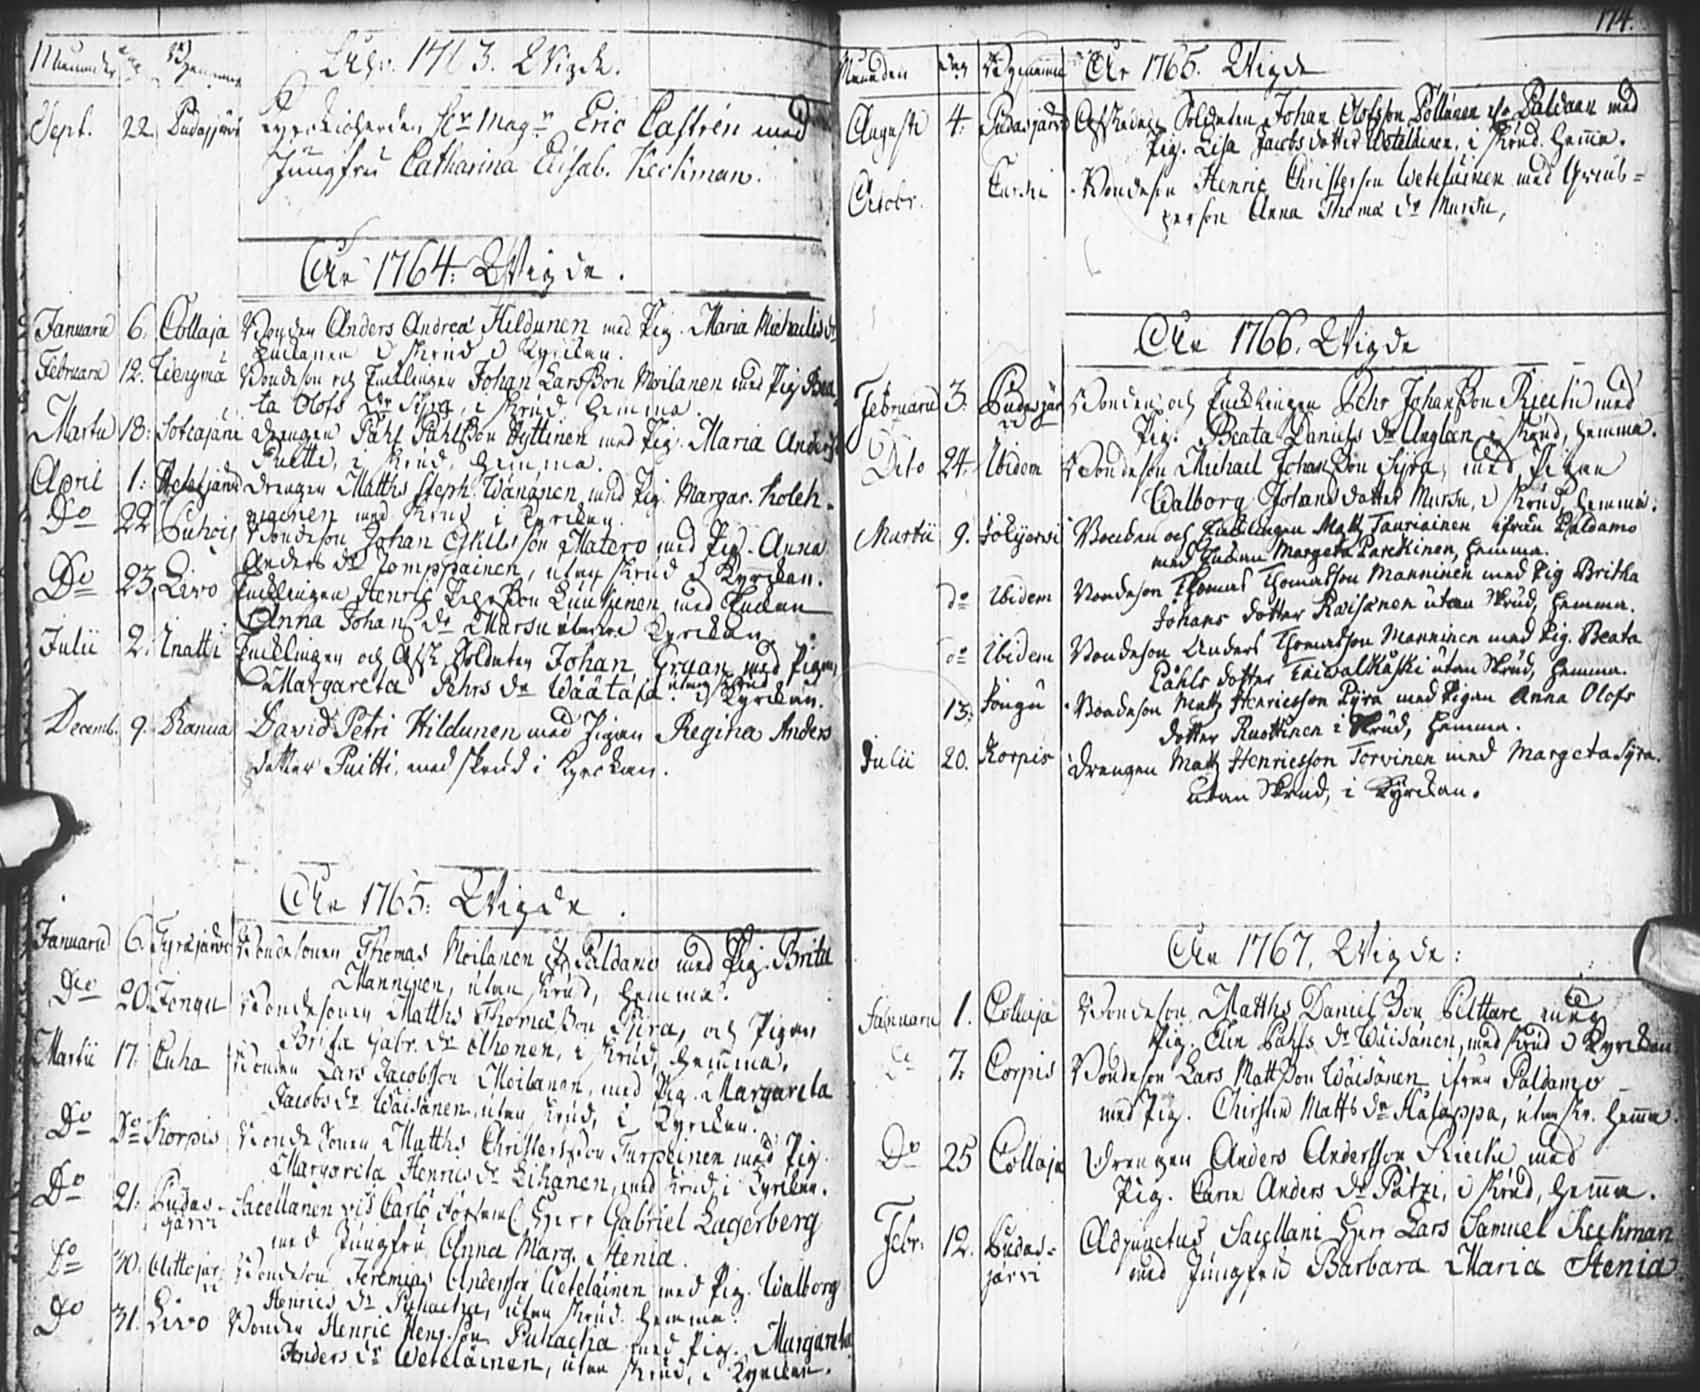 Manader Dag Bynamn
Åhr. 1763. Wigde.
Sept. 22. Pudasjärvi Kyrckioherden Hr Magr Eric Castrén med
Jungfru Catharina Elisab. Keckman.
Åhr 1764: Wigde.
Januarii 6. Collaja Bonden Anders Andreæ Hildunen med Pig. Maria Michaelis dr
i skrud i Kyrckan.
Februarii 12. Bondeson och Encklingen Johan Larsson Moilanen med Pig Bea
ta Olofs dr Syra, i skrud hemma.
Martii 18. Sotcajärvi Drengen Påhl Påhlsson Hyttinen med Pig. Maria Anders
i skrud, hemma.
April 1. Drengen Matths Steph. Wänänen med Pig. Margar. Koleh-
mainen med skrud i Kyrckan.
Do 22 Puhois Bondeson Johan Eskilsson Matero med Pig. Anna
Anders dr Jomppainen, utan skrud i Kyrckan.
Do 23. Livo Encklingen Henric Pehrsson Luusinen med Enckan
Anna Johans dr Mursu utan i Kyrckan.
Julii 2. Inatti Encklingen och Afsk. Soldaten Johan Graan med Pigan
Margareta Pehrs dr Wäätäjä utan skrud i Kyrckan.
Decemb. 9. Ranua David Petri Hildunen med Pigan Regina Anders
dotter Puitti, med skrud i Kyrckan.
Åhr 1765: Wigde.
Januarii 6. Bondesonen Thomas Moilanen fr Paldamo med Pig. Brita
Manninen, utan skrud, hemma.
Do 20. Jongu Bondesonen Matths Thomæsson Pyra, och Pigan
Brita Gabr. dr Ahonen, i skrud, hemma.
Martii 17. Puha Bonden Lars Jacobsson Moilanen, med Pig. Margareta
Jacobs dr Wäisänen, utan skrud, i Kyrckan.
Do Do Korpis Bonde Sonen Matths Christersson Turpeinen med Pig.
Margareta Henrics dr Lihanen, med skrud i Kyrckan.
Do 21. Pudas- Sacellanen vid Carlö församl. Herr Gabriel Lagerberg
järvi med Jungfru Anna Marg. Stenia.
Do 30. Bondeson Jeremias Andersson Weteläinen med Pig. Walborg
Henrics dr Puhacka, utan skrud hemma.
Do 31. Livo Bonden Henric Henr. son Puhacka med Pig. Margareta
Anders dr Weteläinen, utan skrud, i Kyrckan.
174.
Månaden Dag Bynamn Åhr 1765. Wigde
Augusti 4. Pudasjärvi Afskedade Soldaten Johan Olofsson Pöllänen fr Paldam med
Pig. Lisa Jacobsdotter Weteläinen, i skrud. hemma.
Octobr. Bondeson Henric Christersson Weteläinen med
person Anna Thomæ dr Mursu,
Åhr 1766. Wigde
Februarii 3. Pudasjärvi Bonden och Encklingen Pehr Johansson Riecki med
Pig. Beata Daniels dr Anglan i skrud, hemma.
Dito 24. Ibidem Bondeson Michael Johansson Syra, med Pigan
Walborg Johans dotter Mursu, i skrud, hemma.
Martii 9. Bonden och Encklingen Matts Tauriainen ifrån Paldamo
med Enckan Margeta Parckinen, hemma.
do Ibidem Bondeson Thomas Thomasson Manninen med Pig Britha
Johans dotter Räisänen utan skrud, hemma.
do Ibidem Bondeson Anders Thomasson Manninen med Pig. Beata
Påhls dotter Taiwalkåski utan skrud, hemma.
13. Jongu Bondeson Matts Henricsson Pyra med Pigan Anna Olofs
dotter Ruottinen i skrud, hemma.
Julii 20. Korpis Drengen Matts Henricsson Torvinen med Margeta Syra.
utan skrud, i Kyrckan.
Åhr 1767. Wigde:
Januarii 1. Collaja Bondeson Matths Danielsson Pelttare med
Pig. Elin Påhls dr Wäisänen, med skrud i Kyrckan
Do 7. Corpis Bondeson Lars Mattsson Wäisänen ifrån Paldamo
med Pig. Chirstin Matts dr Hålappa, utan skr. hemma.
Do 25 Collaja Drengen Anders Andersson Riecki med
Pig. Carin Anders dr Pätzi, i skrud, hemma.
Febr. 12. Pudas- Adjunctus Sacellani Herr Lars Samuel Keckman
järvi med Jungfru Barbara Maria Stenia